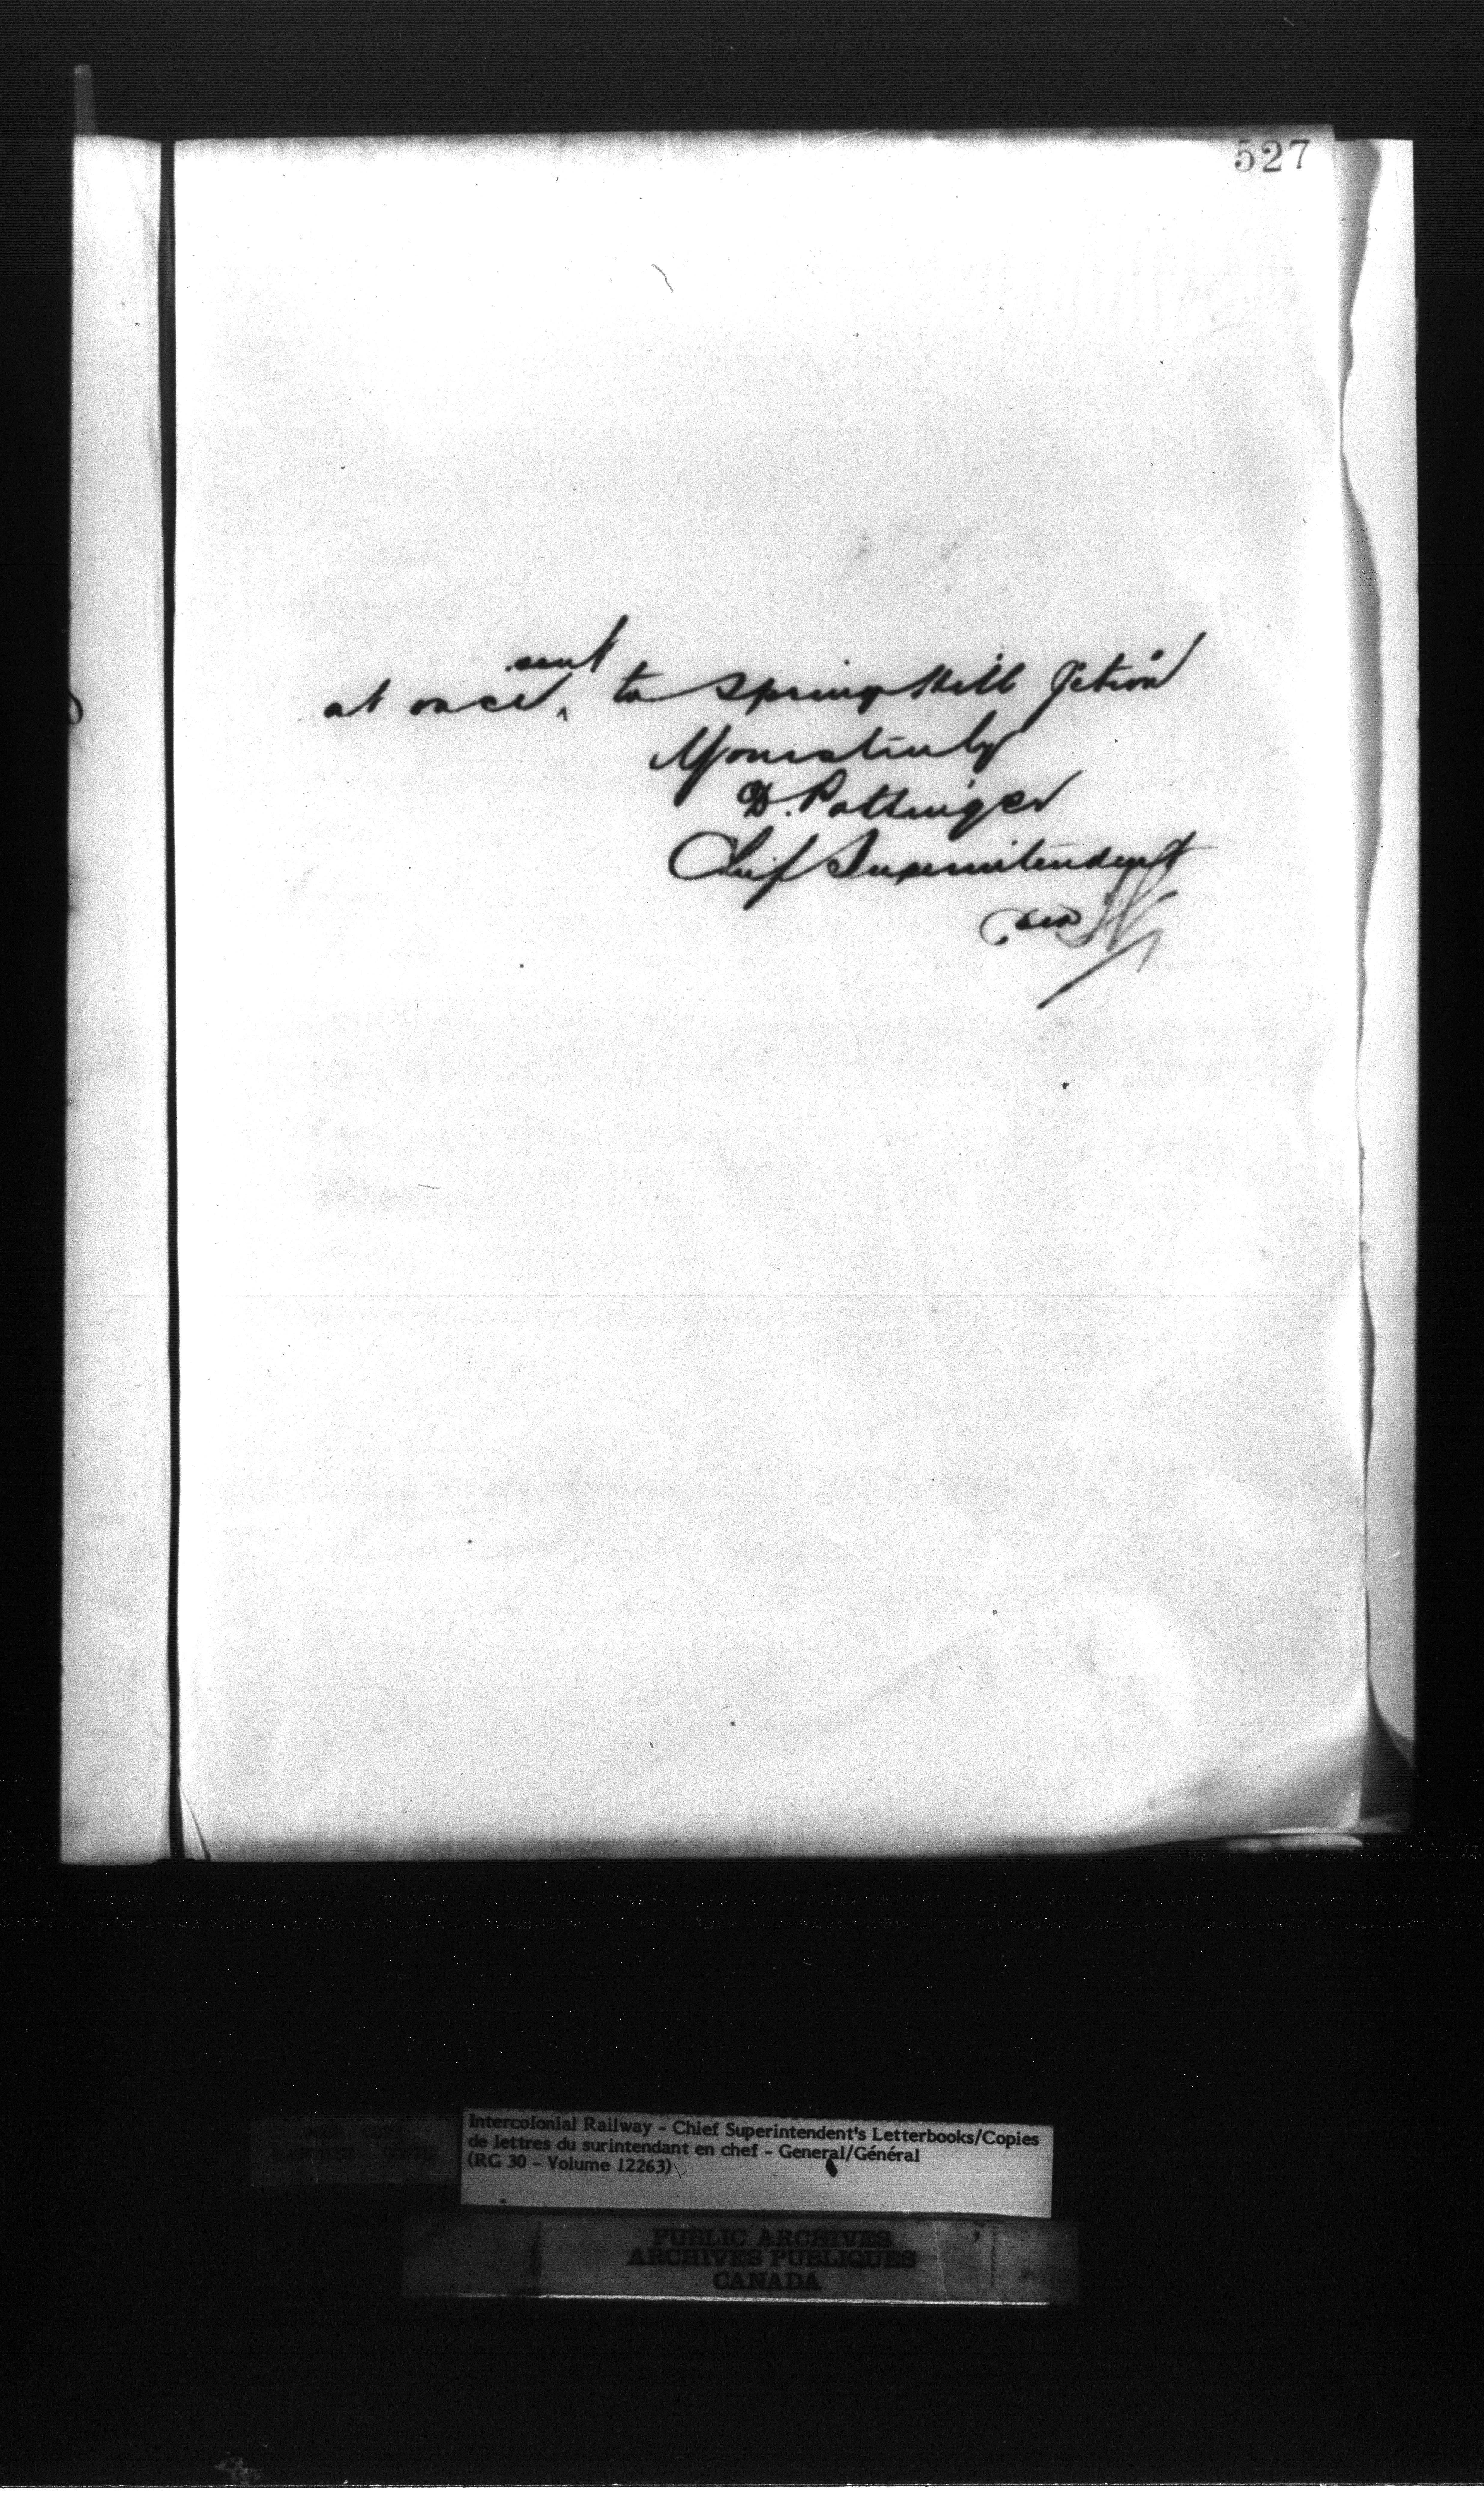 527
sent
at once ^ to Springhill Jction
Yours truly
D. Pottinger
Chief Superintendent
per
POOR COPY
MAUVAISE COPIE
Intercolonial Railway - Chief Superintendent's Letterbooks/Copies
de lettres du surintendant en chef - General/Général
(RG 30 - Volume 12263)
PUBLIC ARCHIVES
ARCHIVES PUBLIQUES
CANADA